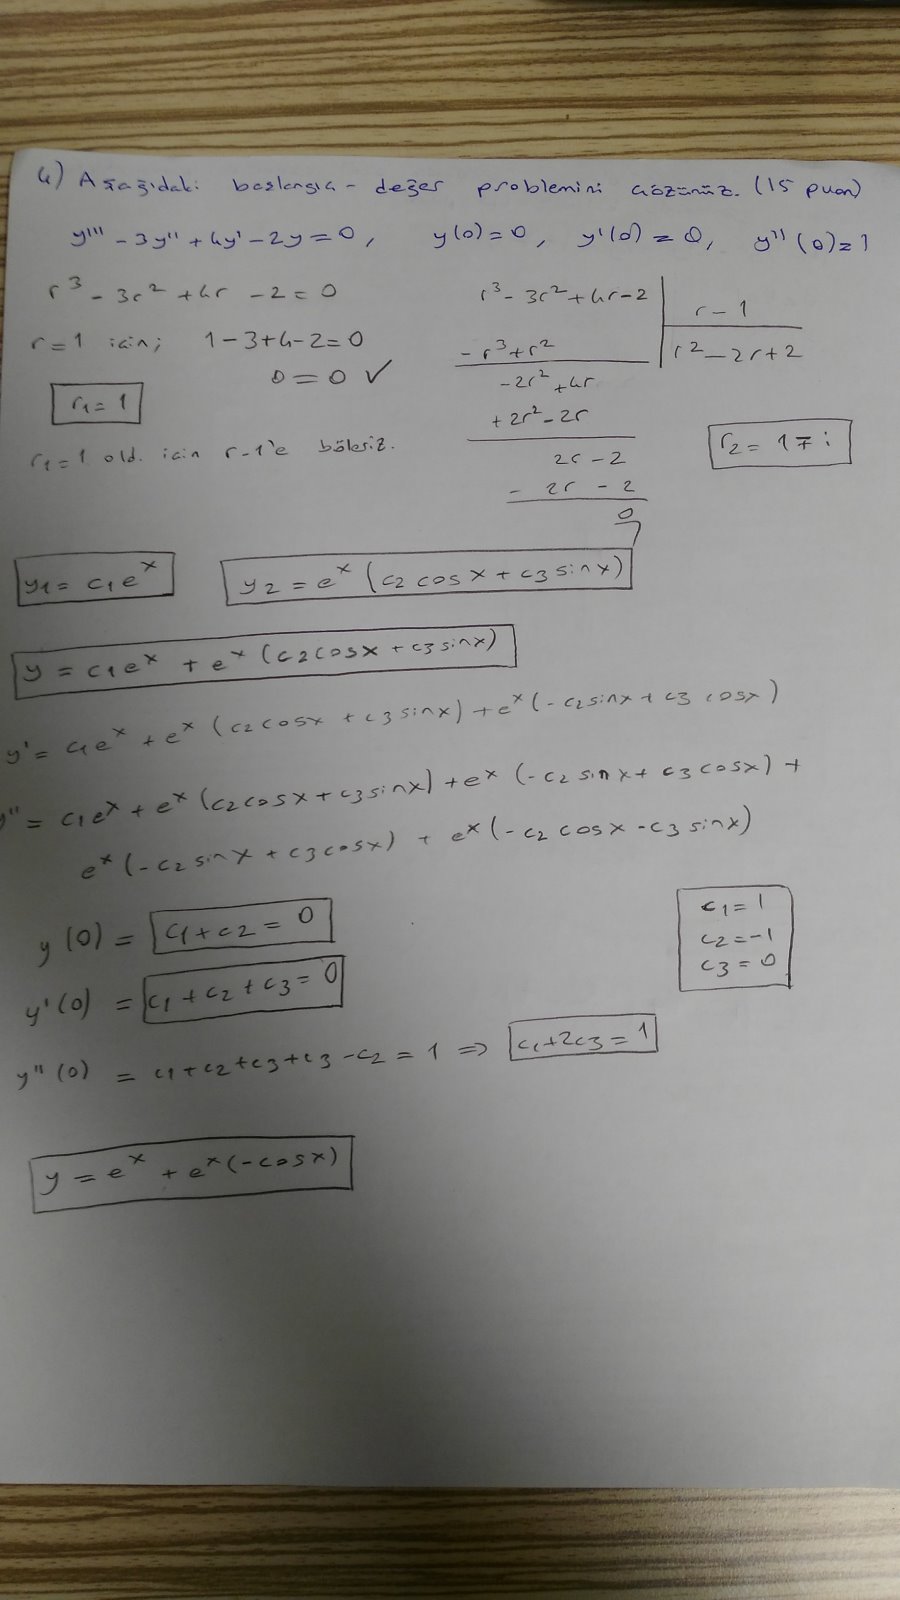 4) Aşağıdaki başlangıç-değer problemini çözünüz. (15 puan)
y''' - 3y'' + 4y' - 2y = 0, y(0) = 0, y'(0) = 0, y''(0) = 1
r³ - 3r² + 4r - 2 = 0
r = 1 için; 1 - 3 + 4 - 2 = 0
0 = 0 ✓
r₁ = 1
r₁ = 1 old. için r-1'e böleriz.
r³ - 3r² + 4r - 2 | r - 1
- r³ + r² | r² - 2r + 2
-2r² + 4r
+ 2r² - 2r
2r - 2
- 2r - 2
0
r₂ = 1 ∓ i
y₁ = c₁eˣ
y₂ = eˣ (c₂ cosx + c₃ sinx)
y = c₁eˣ + eˣ (c₂cosx + c₃sinx)
y' = c₁eˣ + eˣ (c₂cosx + c₃sinx) + eˣ(-c₂sinx + c₃ cosx)
y'' = c₁eˣ + eˣ (c₂cosx + c₃sinx) + eˣ (-c₂ sinx + c₃cosx) +
eˣ (-c₂ sinx + c₃cosx) + eˣ (-c₂ cosx - c₃ sinx)
y(0) = c₁ + c₂ = 0
y'(0) = c₁ + c₂ + c₃ = 0
y''(0) = c₁ + c₂ + c₃ + c₃ - c₂ = 1 ⇒ c₁ + 2c₃ = 1
c₁ = 1
c₂ = -1
c₃ = 0
y = eˣ + eˣ(-cosx)